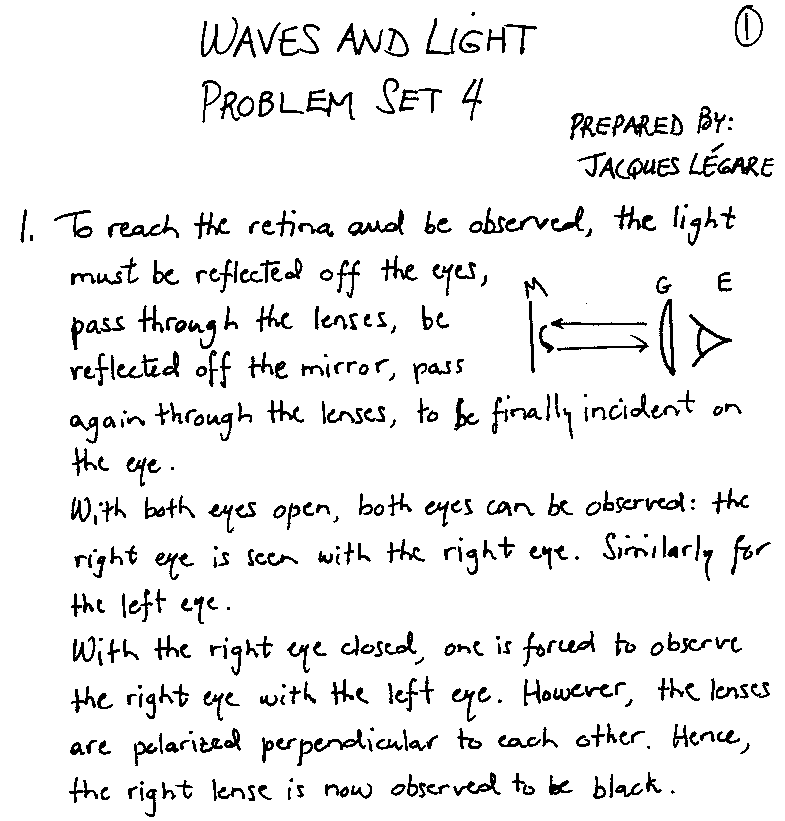 WAVES AND LIGHT
①
PROBLEM SET 4
PREPARED BY:
JACQUES LÉGARE
1. To reach the retina and be observed, the light
must be reflected off the eyes,
M G E
pass through the lenses, be
reflected off the mirror, pass
again through the lenses, to be finally incident on
the eye.
With both eyes open, both eyes can be observed: the
right eye is seen with the right eye. Similarly for
the left eye.
With the right eye closed, one is forced to observe
the right eye with the left eye. However, the lenses
are polarized perpendicular to each other. Hence,
the right lense is now observed to be black.